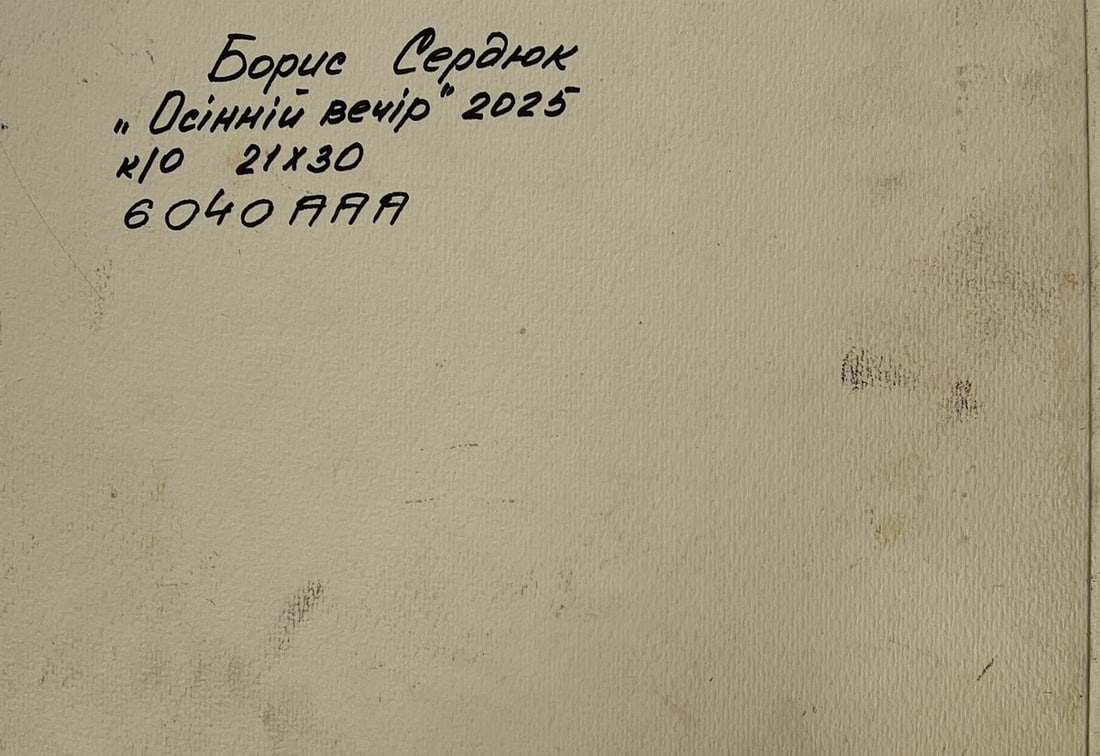 Борис Сердюк
„Осінній вечір" 2025
к/о 21х30
6040AAA